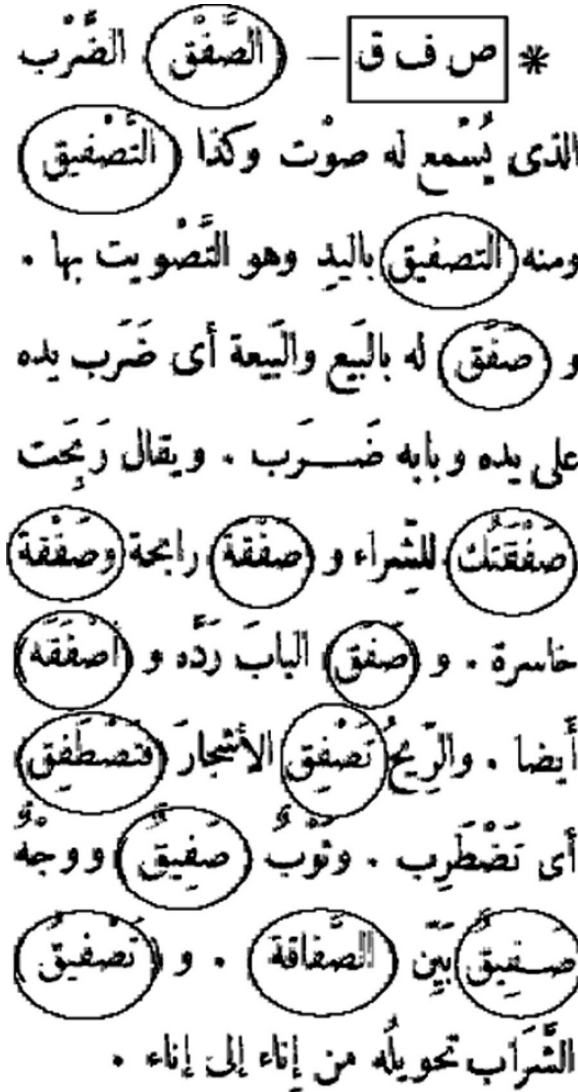 * ص ف ق — (الصَّفْق) الضَّرْب
الذى يُسْمع له صوْت وكذا (التَّصْفيق)
ومنه التصفيق باليدِ وهو التَّصْويت بها .
و (صَفَق) له بالبَيع والبَيعة أى ضَرَب يده
على يده وبابه ضَــرَب . ويقال رَبِحَت
صَفْقَتُك للشِّراء و (صَفْقَة) رابحة وصَفْقة
خاسرة . و (صَفَق) البابَ رَدَّه و (أَصْفَقَه)
أيضا . والرِّيحُ تَصْفِق الأشجارَ (فتَصْطَفِق)
أى تَضْطَرِب . وثَوْبٌ (صَفِيقٌ) ووجْهٌ
صَفِيقٌ بَيِّن (الصَّفاقة) . و (تَصْفيقُ)
الشَّرَاب تحويلُه من إناء إلى إناء .